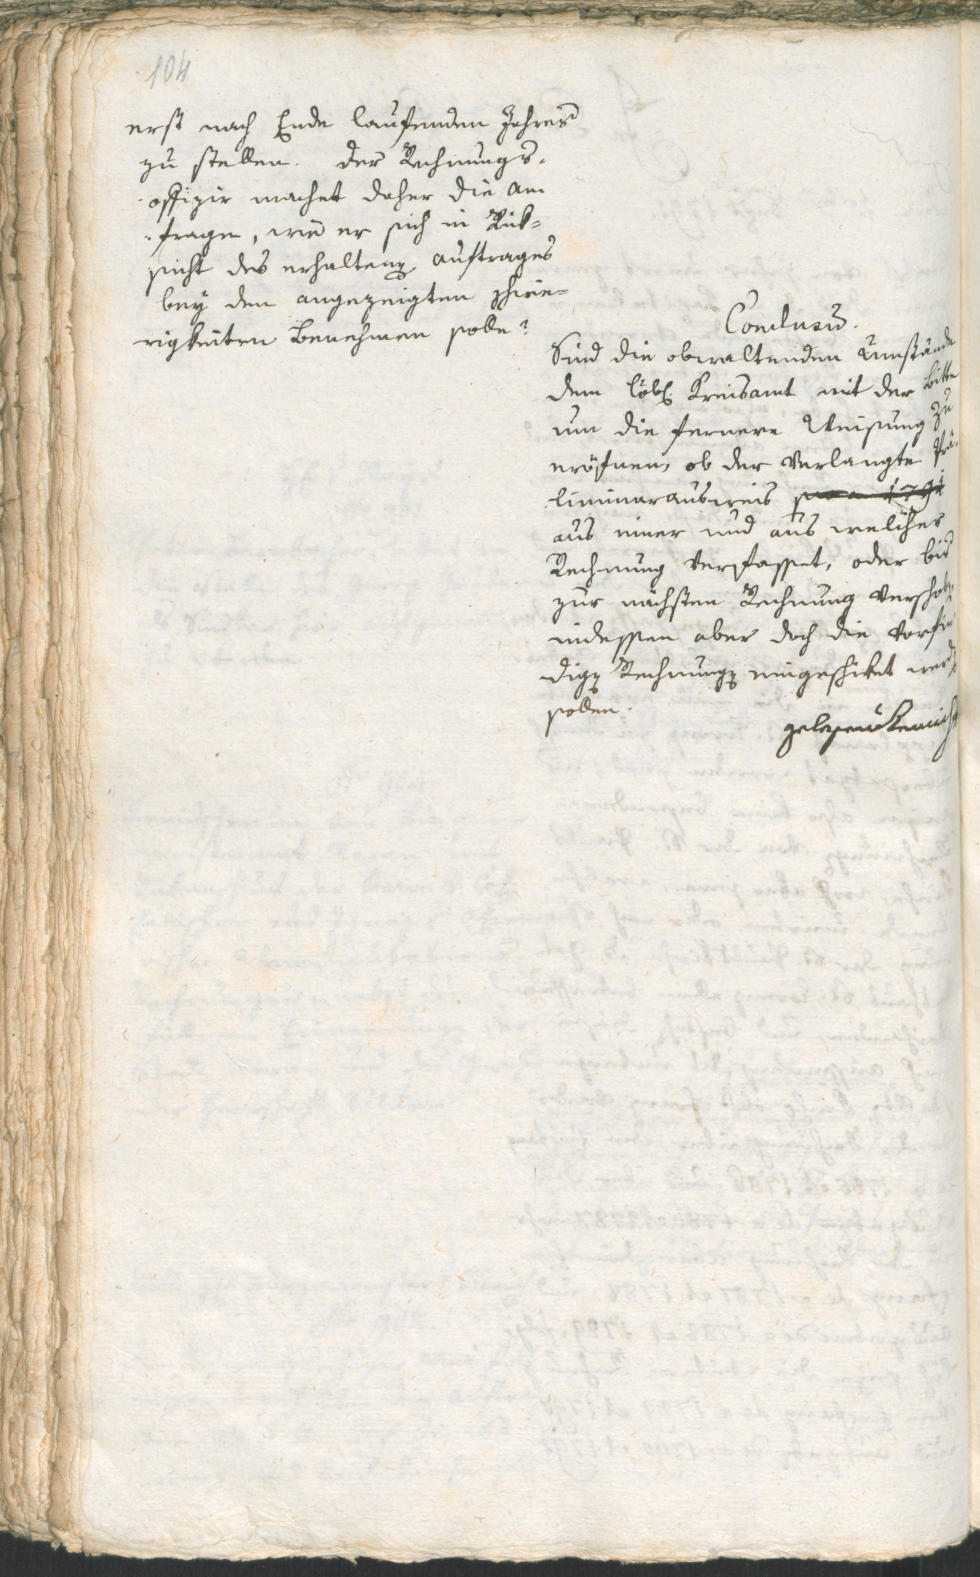 104
erst nach Ende laufenden Jahres
zu stellen. Der Rechnungs-
offizir machet daher die An
-frage, wie er sich in Rük-
sicht des erhalteng Auftrages
bey den angezeigten schwie-
rigkeiten benehmen solle?
Conclusũ.
Sind die obwaltenden Umstände
dem löbl. Kreisamt mit der Bitte
um die fernere Weisung zu
eröfnen, ob der verlangte Prä-
liminarausweis pro a 1791
aus einer und aus welcher
Rechnung verfasset, oder bis
zur nächsten Rechnung verschob
indessen aber doch die vorfin
dige Rechnung eingeschiket werd
sollen.